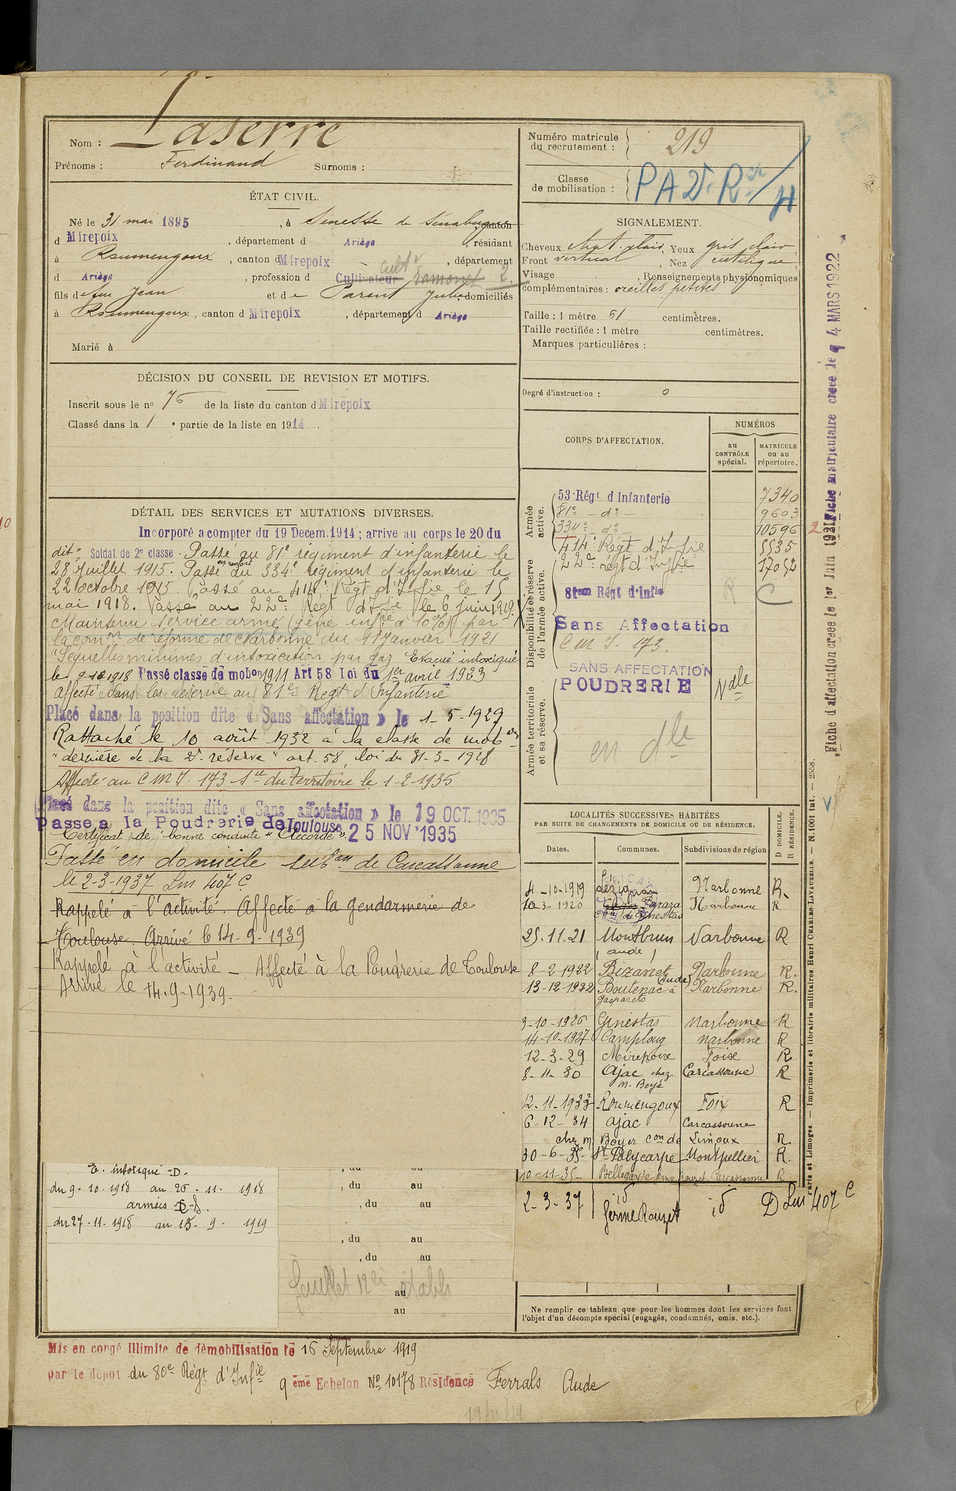 Nom : Laserre
Prénoms : Ferdinand Surnoms :
Numéro matricule du recrutement : 219
Classe de mobilisation : P A D. R
ÉTAT CIVIL.
Né le 31 mai 1895, à Senesse de Senabugue canton
d Mirepoix, département d Ariège, résidant
à Roumengoux, canton d Mirepoix, département
d Ariège, profession d Cultivateur ramonet cult r 2.
fils de feu Jean et de Parent Julie domiciliés
à Roumengoux, canton d Mirepoix, département d Ariège
Marié à
SIGNALEMENT.
Cheveux chat. clair, Yeux gris clair
Front vertical, Nez rectiligne
Visage , Renseignements physionomiques
complémentaires : oreilles petites
Taille : 1 mètre 61 centimètres.
Taille rectifiée : 1 mètre centimètres.
Marques particulières :
Degré d'instruction : 0
DÉCISION DU CONSEIL DE REVISION ET MOTIFS.
Inscrit sous le no 76 de la liste du canton d Mirepoix
Classé dans la 1 e partie de la liste en 1914.
CORPS D'AFFECTATION.
NUMÉROS
au CONTRÔLE spécial.
MATRICULE ou au répertoire.
Armée active.
53 Régt d Infanterie 7340
81e - do - 9603
334e - do 10596
414e Régt d'Infie 5535
Disponibilité et réserve de l'armée active.
22e régt d'Infie 17052
81em Régt d'Infie R C
Sans Affectation
C M I. 173.
SANS AFFECTATION
POUDRERIE Nelle
Armée territoriale et sa réserve.
en dle
DÉTAIL DES SERVICES ET MUTATIONS DIVERSES.
Incorporé a compter du 19 Decem. 1914 ; arrive au corps le 20 du
dit. Soldat de 2e classe. Passé au 81e régiment d'infanterie le
28 Juillet 1915. Passé en renfort du 334e régiment d'infanterie le
22 octobre 1915. Passé au 414e Régt d'Infie le 15
mai 1918. Passé au 22e Régt d'Infie le 6 juin 1919
Maintenu service armé (gêne infre à 10%) par
la comon de réforme de Narbonne du 11 Janvier 1921
"Séquelles minimes d'intoxication par gaz Evacué intoxiqué
le 9-10 1918 Passé classe de mobon 1911 Art 58 Loi du 1er avril 1923
affecté dans les réserves au 81e Regt d'Infanterie
Placé dans la position dite « Sans affectation » le 1-5-1929
Rattaché le 10 août 1932 à la classe de mobon
"dernière de la 2e réserve" art. 58, loi du 31-3-1928
Affecté au C M I. 173 - Sre du Territoire le 1-2-1935
Placé dans la position dite « Sans affectation » le 19 OCT. 1935
Passe a la Poudrerie de Toulouse 25 NOV 1935
Certificat de bonne conduite "Accordé"
Passé en domicile subon de Carcassonne
le 2-3-1937 Lm 407 C
Rappelé à l'activité. Affecté à la gendarmerie de
Toulouse. Arrivé le 14-9-1939
Rappelé à l'activité - Affecté à la Poudrerie de Toulouse
Arrivé le 14.9-1939.
LOCALITÉS SUCCESSIVES HABITÉES
PAR SUITE DE CHANGEMENTS DE DOMICILE OU DE RÉSIDENCE.
Dates. Communes. Subdivisions de région D DOMICILE. R RÉSIDENCE.
4-10-1919 Lézignan Narbonne R.
10-3-1920 Paraza con de Ginestas Narbonne R
25.11.21 Montbrun (aude) Narbonne R
8-2-1922 Bizanet (Aude) Narbonne R.
13-12-1922 Boutenac à Gasparets Narbonne R.
3-10-1926 Ginestas Narbonne R
14-10-1927 Camplong Narbonne R
12-3-29 Mirepoix Foix R
8-11-30 Ajac chez M. Boyé Carcassonne R
12.11-1933 Roumengoux Foix R
6-12-34 ajac Carcassonne
chez m Boyer con de Limoux R.
30-6-35 St Polycarpe Montpellier R.
10-11-35 Carcassonne R
2-3-37 id ferme Rouzet id D Lm 407 C
E. intoxiqué -D-
du 9-10-1918 au 26-11-1918
armées
du 27-11-1918 au 15-9-1919
, du au
, du au
, du au
, du au
au
au
feuillet 12e établi
Ne remplir ce tableau que pour les hommes dont les services font
l'objet d'un décompte spécial (engagés, condamnés, omis, etc.).
Mis en congé illimité de démobilisation le 16 Septembre 1919
par le dépot du 80e Régt d'Infie 9 eme Echelon No 10178 Résidence Ferrals Aude
19/11/19
Fiche matriculaire créée le 4 MARS 1922
Fiche d'affectation créée le 1er Juin 1921
Paris et Limoges. — Imprimerie et librairie militaires Henri CHARLES-LAVAUZELLE. — N. 1001 int. — 2558.